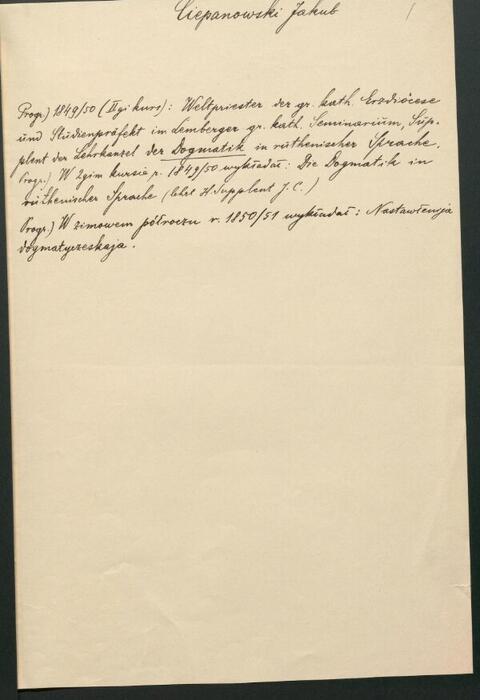 Ciepanowski Jakub
Progr.) 1849/50 (II gi kurs): Weltpriester der gr. kath. Erzdiöcese
und Studienpräfekt im Lemberger gr. kath. Seminarium, Sup-
plent der Lehrkanzel der Dogmatik in ruthenischer Sprache.
Progr.) W 2gim kursie r. 1849/50 wykładał: Die Dogmatik in
ruthenischer Sprache (lehrt H. Supplent J. C.)
Progr.) W zimowem półroczu r. 1850/51 wykładał: Nastawlenija
dogmatyczeskaja.